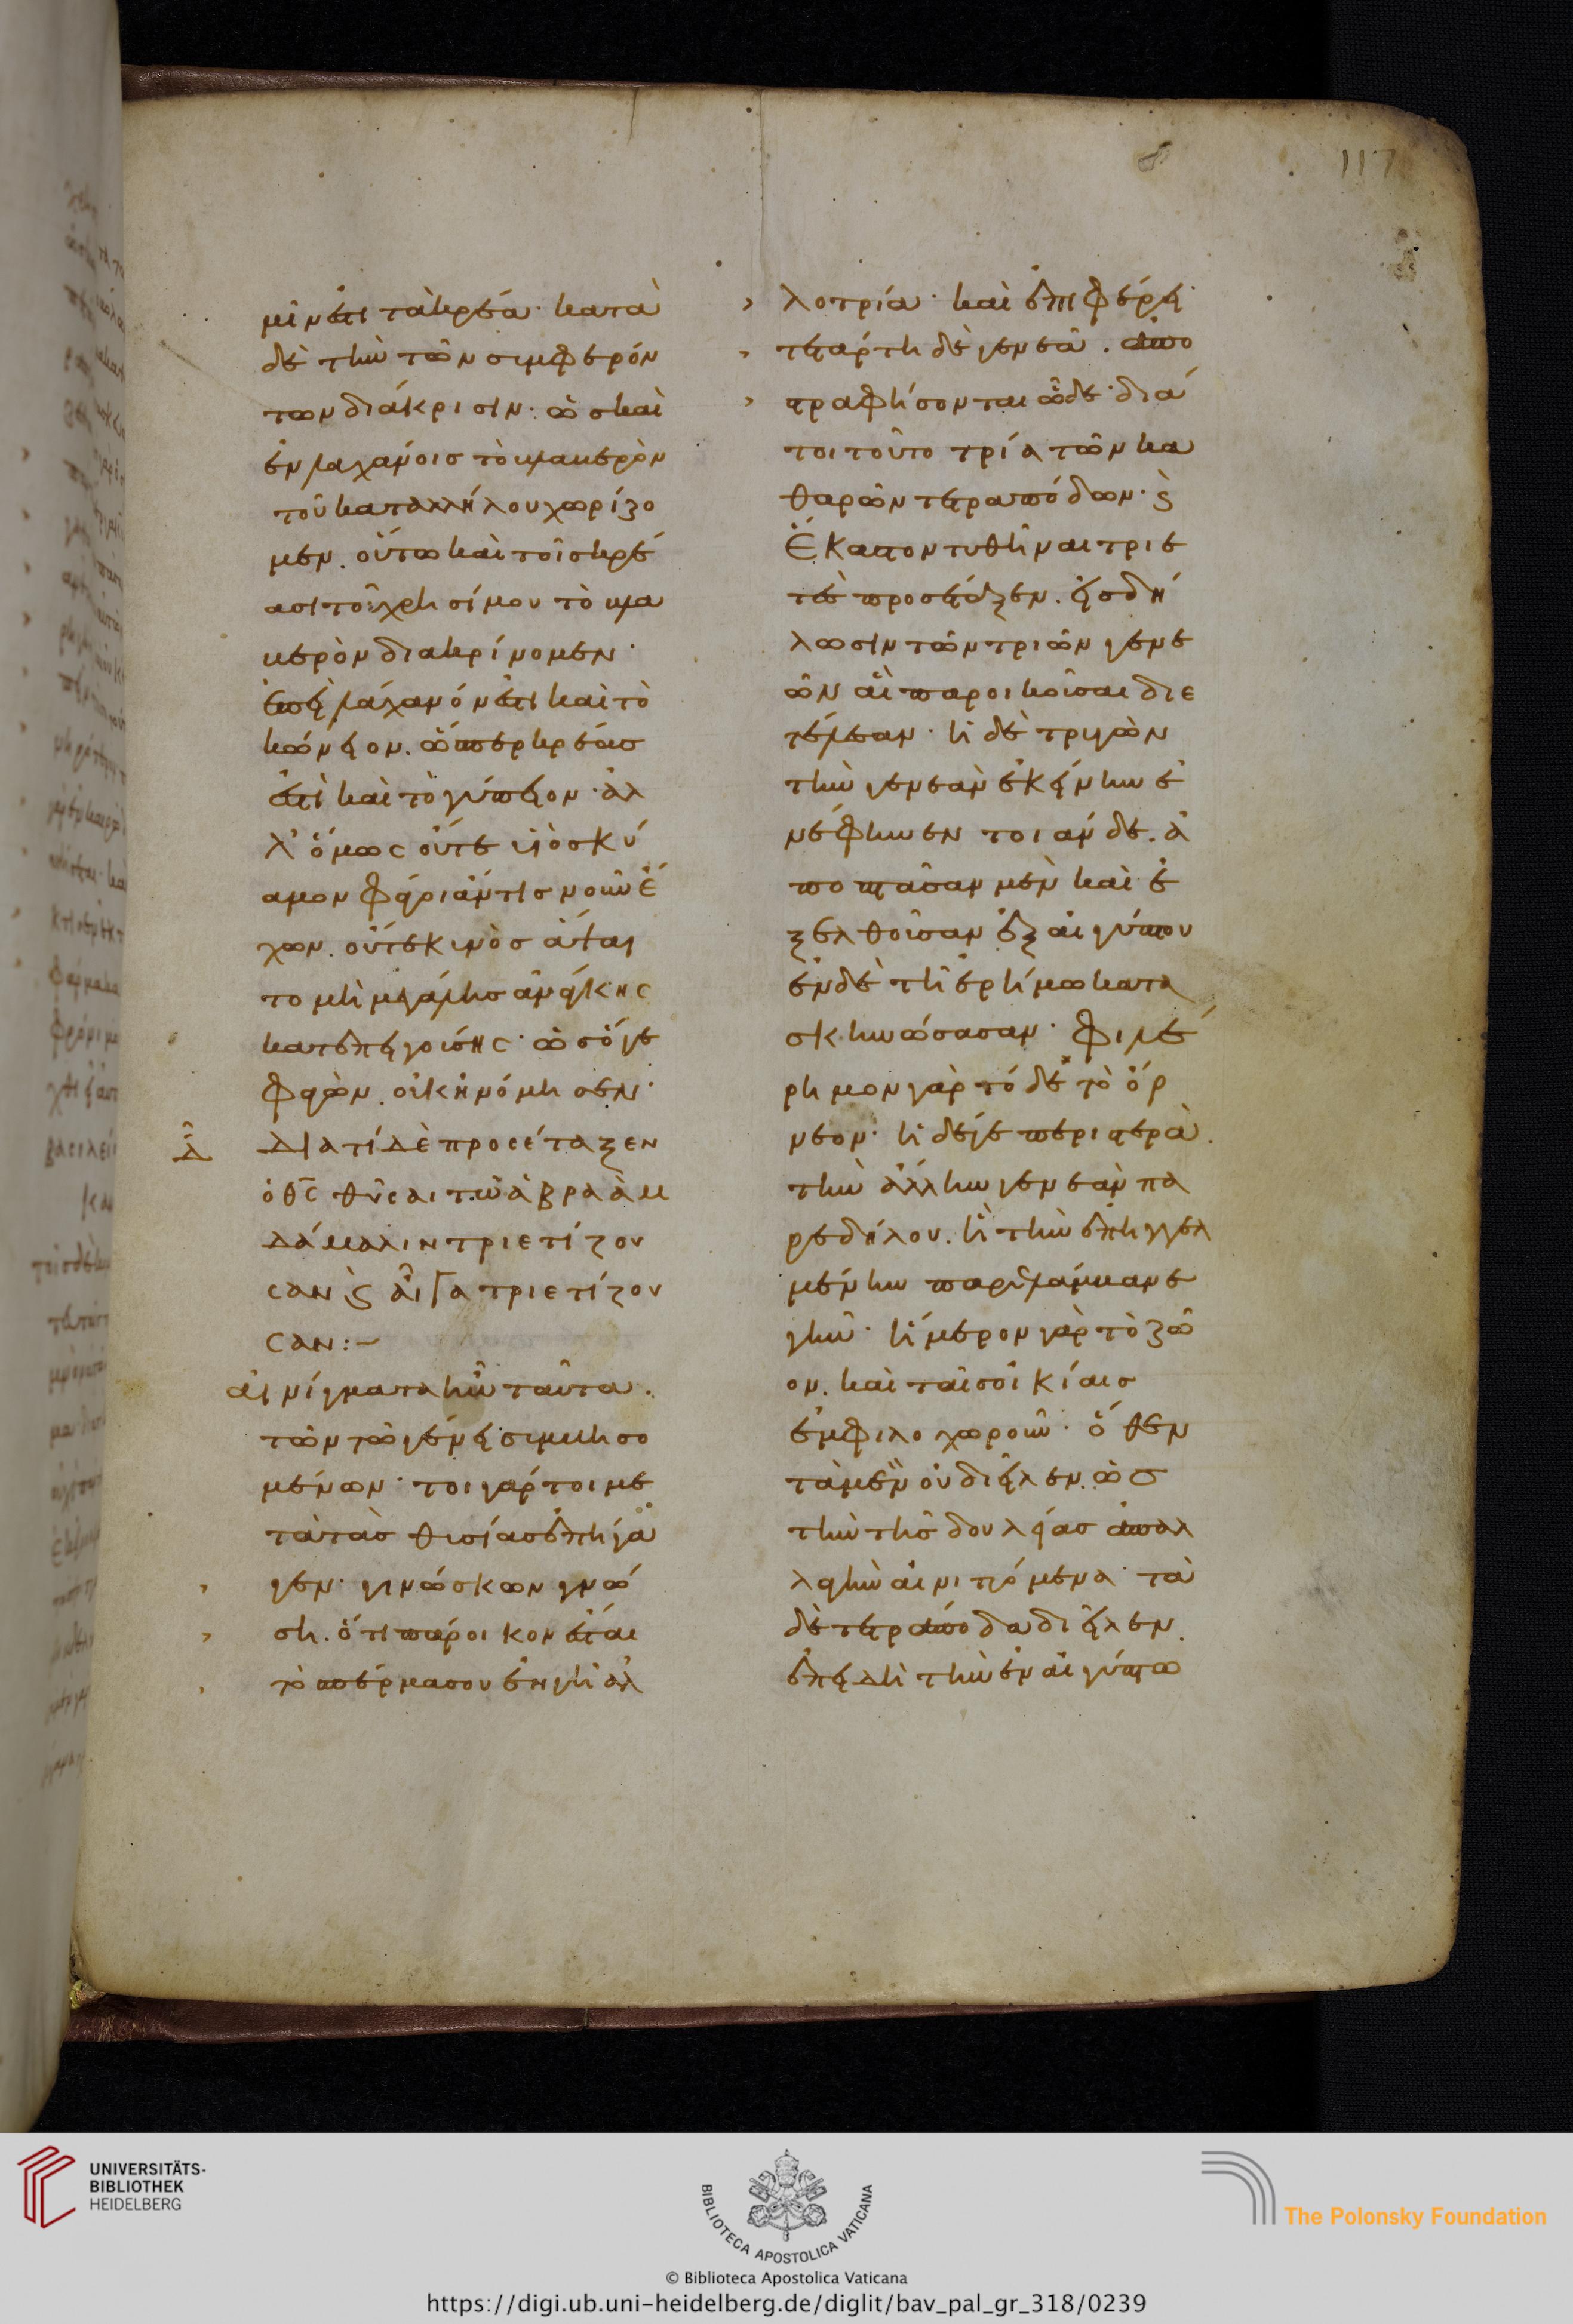 117
μῖν ἐστι τὰ κρέα· κατὰ
δὲ τὴν τῶν συμφερόν
των διάκρισιν· ὡς καὶ
ἐν λαχάνοις τὸ βλαβερὸν
τοῦ καταλλήλου χωρίζο
μεν. οὕτω καὶ τοῖς κρέ
ασι τοῦ χρησίμου τὸ βλα
βερὸν διακρίνομεν·
ἐπεὶ λάχανόν ἐστι καὶ τὸ
κώνειον. ὥσπερ κρέας
ἐστὶ καὶ τὸ γύπειον· ἀλ
λ' ὅμως οὔτε ὑὸσκύ
αμον φάγοι ἄν τις νοῦν ἔ
χων. οὔτε κυνὸς ἅψαι
το μὴ μεγάλης ἀνάγκης
κατεπειγούσης· ὡς ὅγε
φαγὼν. οὐκ ἠνόμησεν·
Διατί δὲ προσέταξεν
ὁ θς θῦσαι τῶ ἀβραὰμ
δάμαλιν τριετίζου
σαν ϛ αἶγα τριετίζου
σαν:–
αἰνίγματα ἦν ταῦτα.
τῶν τῶ γένει συμβησο
μένων· τοιγάρτοι με
τὰ τὰς θυσίας ἐπήγα
γεν· γινώσκων γνώ
ση. ὅτι πάροικον ἔσται
τὸ σπέρμα σου ἐν γῆ ἀλ
λοτρία· καὶ ἐπιφέρει·
τετάρτη δὲ γενεᾶ. ἀπο
στραφήσονται ὧδε· διά
τοι τοῦτο τρία τῶν κα
θαρῶν τετραπόδων· ϛ
Ἕκαστον τυθῆναι τριε
τὲς προσέταξεν. εἰς δή
λωσιν τῶν τριῶν γενε
ῶν αἳ παροικοῦσαι διε
τέλεσαν· ἡ δὲ τρυγὼν
τὴν γενεὰν ἐκείνην ἐ
νέφηνεν τοιάνδε. ἀ
ποστᾶσαν μὲν καὶ ἐ
ξελθοῦσαν ἐξ αἰγύπτου
ἐν δὲ τῆ ἐρήμω κατα
σκηνώσασαν· φιλέ
ρημον γὰρ τόδε τὸ ὄρ
νεον· ἡ δέ γε περιστερὰ.
τὴν ἄλλην γενεὰν πα
ρεδήλου. ἣ τὴν ἐπηγγελ
μένην παρελάμβανε
γῆν· ἥμερον γὰρ τὸ ζῶ
ον. καὶ ταῖς οἰκίαις
ἐμφιλοχωροῦν· ὅθεν
τὰ μὲν οὐ διεῖλεν. ὡς
τὴν τῆς δουλείας ἀπαλ
λαγὴν αἰνιττόμενα· τὰ
δὲ τετράποδα διεῖλεν.
ἐπειδὴ τὴν ἐν αἰγύπτω
UNIVERSITÄTS-
BIBLIOTHEK
HEIDELBERG
BIBLIOTECA APOSTOLICA VATICANA
The Polonsky Foundation
© Biblioteca Apostolica Vaticana
https://digi.ub.uni-heidelberg.de/diglit/bav_pal_gr_318/0239